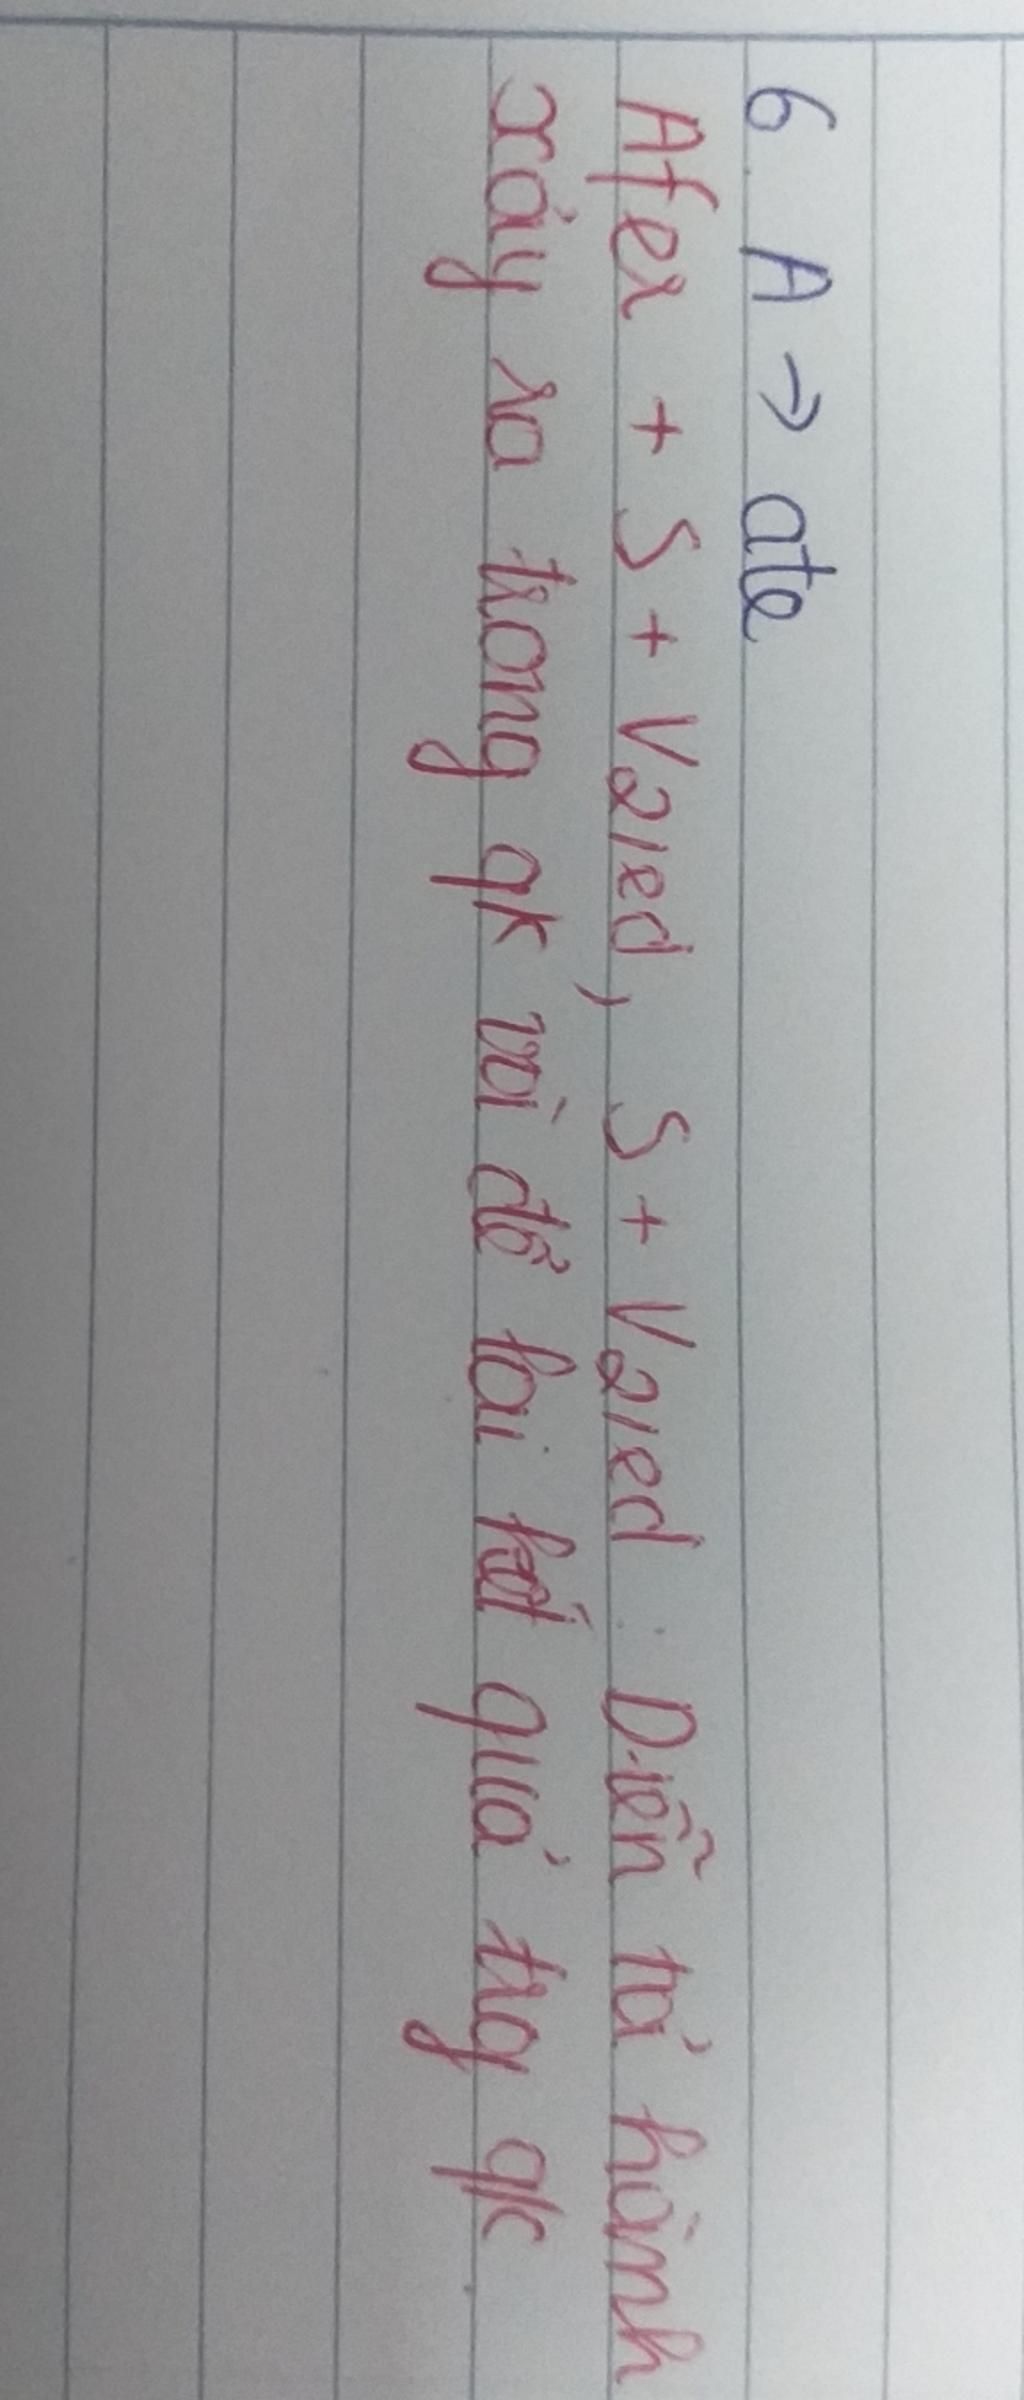 6. A → ate
Afer + S + V2/ed, S + V2/ed : Diễn tả hành
xảy ra trong qk và để lại kết quả trg qk.